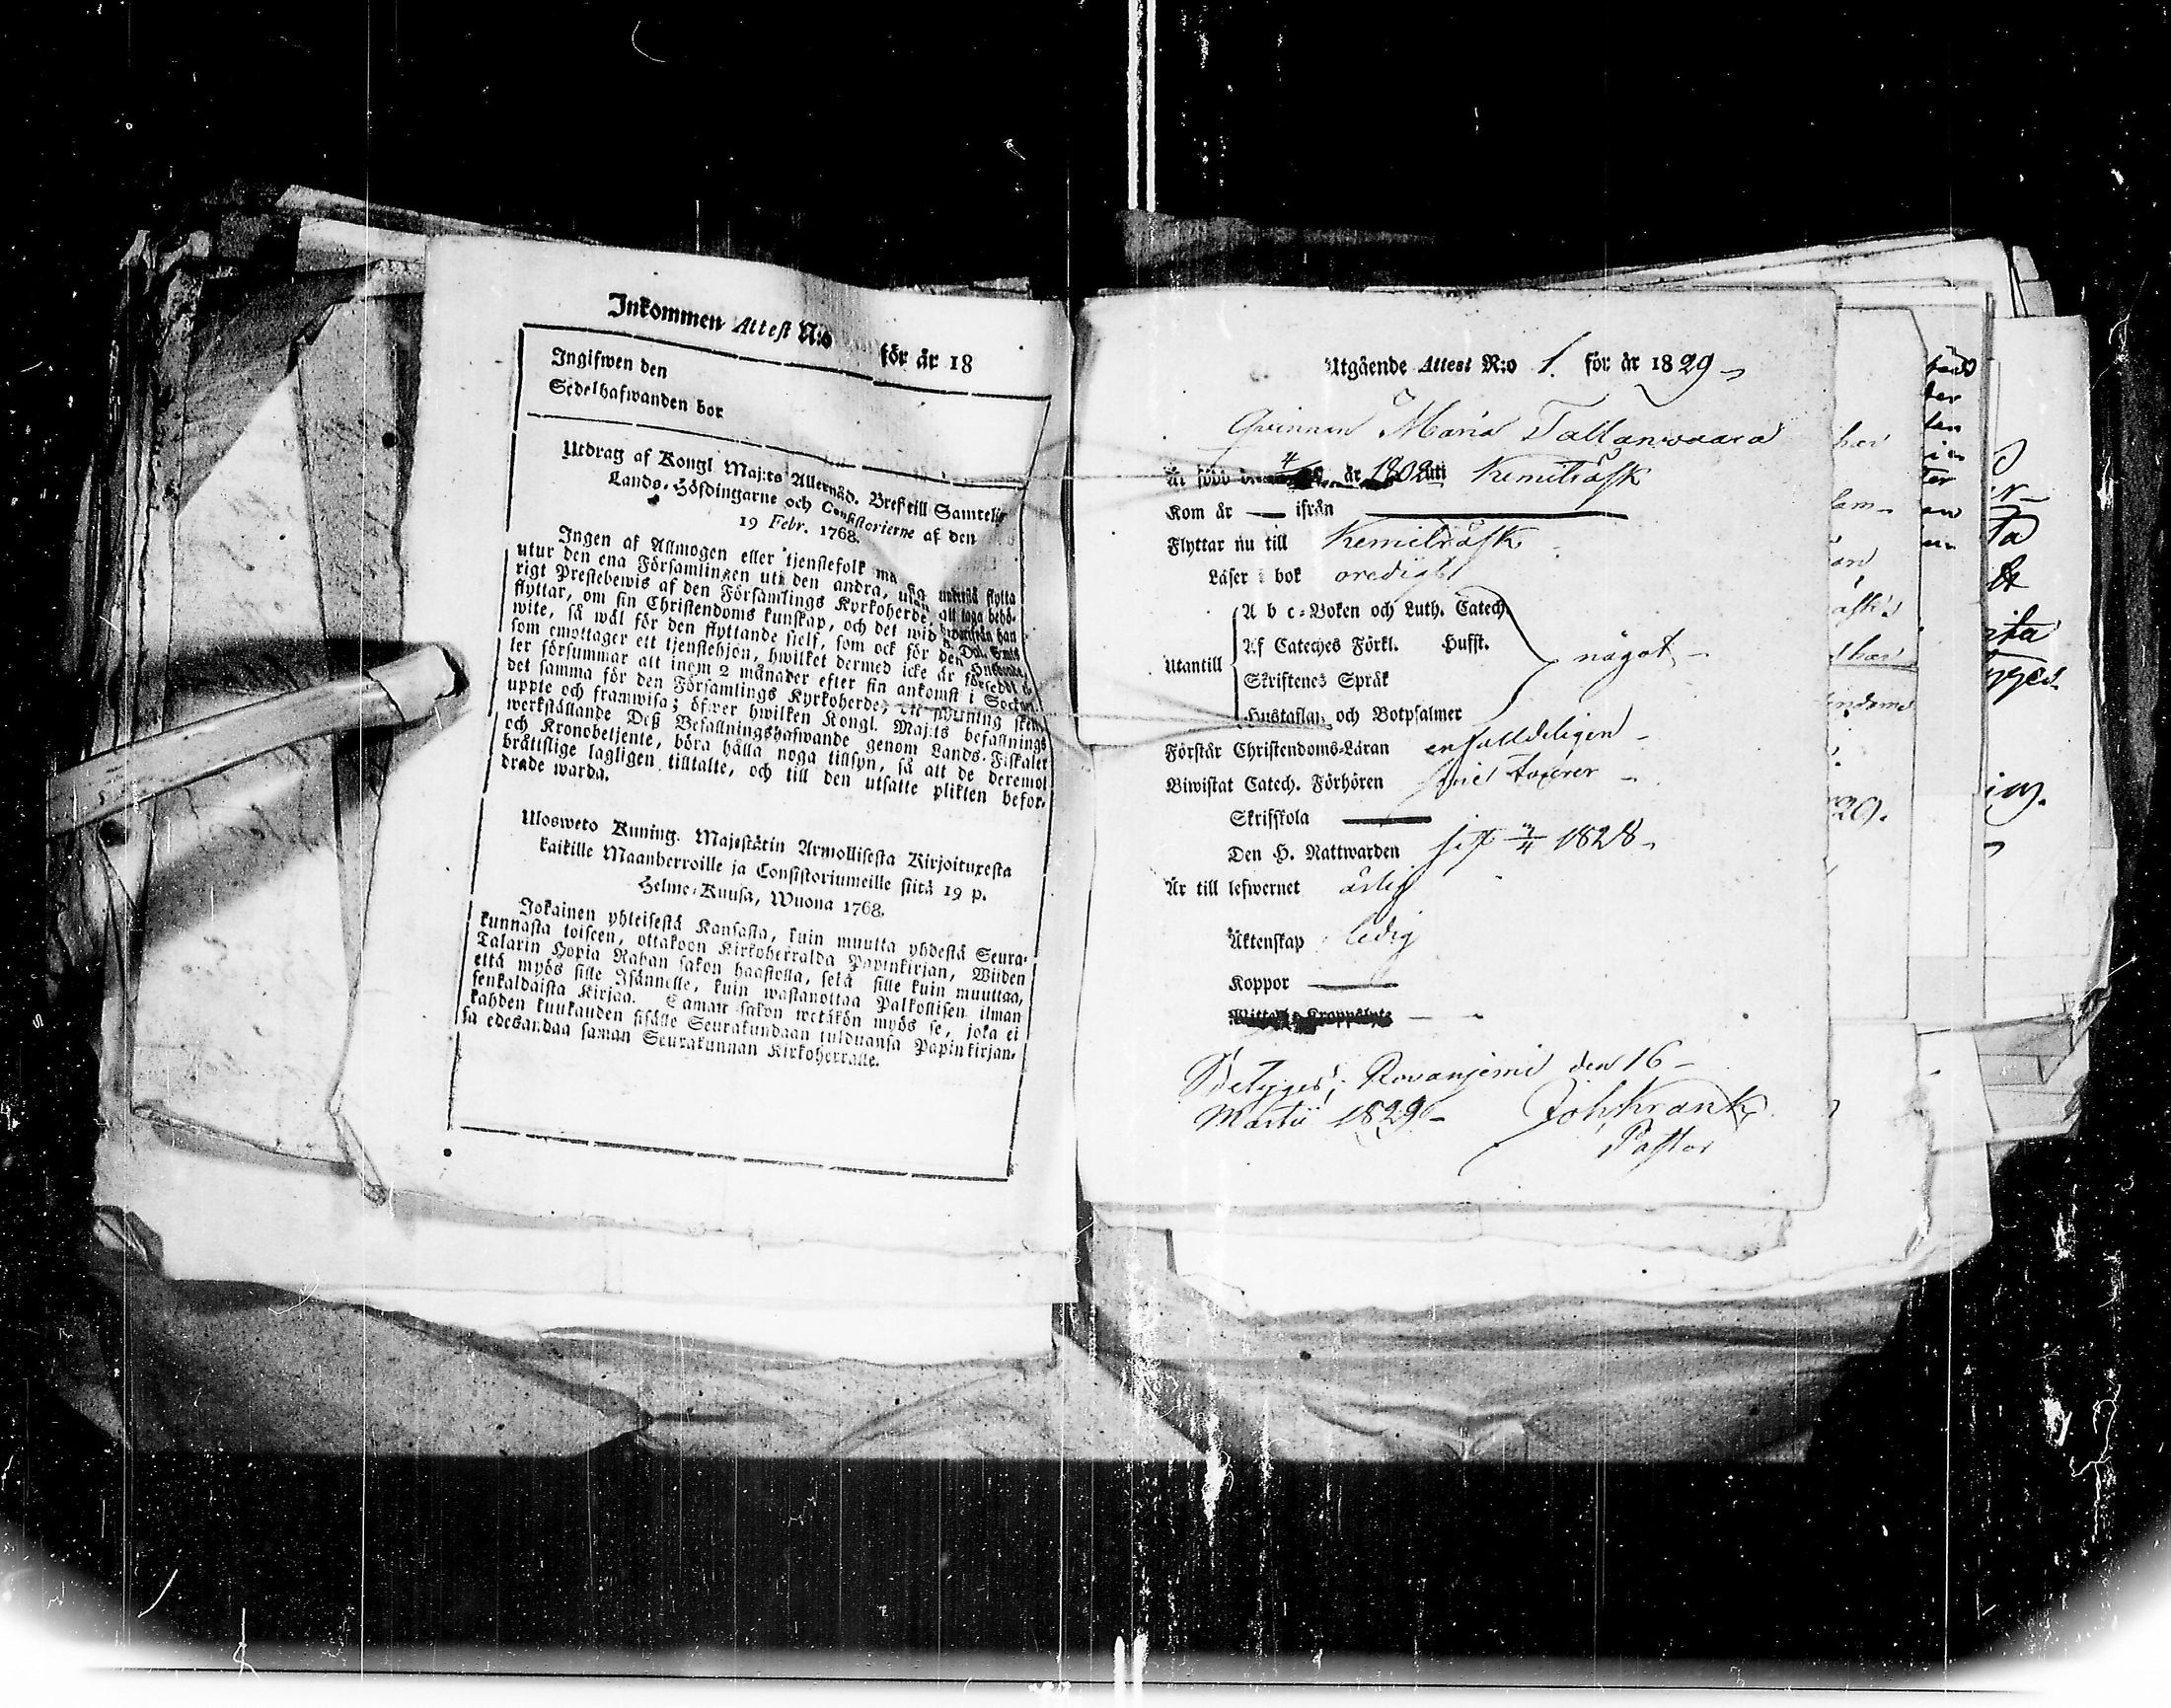 Inkommen Attest N:o för år 18
Ingifwen den
Sedelhafwanden bor
Utdrag af Kongl. Maj:ts Allernåd. Bref till Samtelige
Lands-Höfdingarne och Consistorierne af den
19 Febr. 1768.
Ingen af Allmogen eller tjenstefolk må sig understå flytta
utur den ena Församlingen uti den andra, utan att taga behö-
rigt Prestebewis af den Församlings Kyrkoherde, hwarifrån han
flyttar, om sin Christendoms kunskap, och det wid 5 Dal. Smts
wite, så wäl för den flyttande sielf, som ock för den Husbonde,
som emottager ett tjenstehjon, hwilket dermed icke är försedt
ler försummar att inom 2 månader efter sin ankomst i Socknen
det samma för den Församlings Kyrkoherde, uppte och framwisa; öfwer hwilken Kongl. Maj:ts befallnings
werkställande Deß Befallningshafwande genom Lands-Fiskaler
och Kronobetjente, böra hålla noga tillsyn, så att de deremot
bråttslige lagligen tilltalte, och till den utsatte plikten befor-
drade warda.
Ulosweto Kuning. Majestätin Armollisesta Kirjoituxesta
kaikille Maanherroille ja Consistoriumeille siitä 19 p.
Helme-Kuusa, Wuona 1768.
Jokainen yhteisestä Kansasta, kuin muutta yhdestä Seura-
kunnasta toiseen, ottakoon Kirkoherralda Papinkirjan, Wiiden
Talarin Hopia Rahan sakon haastolla, sekä sille kuin muuttaa,
että myös sille Isännelle, kuin wastanottaa Palkollisen ilman
senkaldaista Kirjaa. Saman sakon wetäkön myös se, joka ei
kahden kuukauden sisälle Seurakundaan tulduansa Papinkirjan-
sa edesandaa saman Seurakunnan Kirkoherralle.
Utgående Attest N:o 1. för år 1829
Qvinnan Maria Tallanwaara
Är född år 1802 uti Kemiträsk
Kom år — ifrån —
Flyttar nu till Kemiträsk
Läser i bok oredigt
A b c-Boken och Luth. Catech.
Af Cateches Förkl. Husst.
Utantill något
Skriftenes Språk
Hustaflan och Botpsalmer
Förstår Christendoms-Läran enfalldeligen
Biwistat Catech. Förhören
Skriftskola —
Den H. Nattwarden sist 1828
Är till lefwernet ärlig
Äktenskap ledig
Koppor —
Betygas; Rovanjemi den 16
Martii 1829 Joh. Frank
Pastor